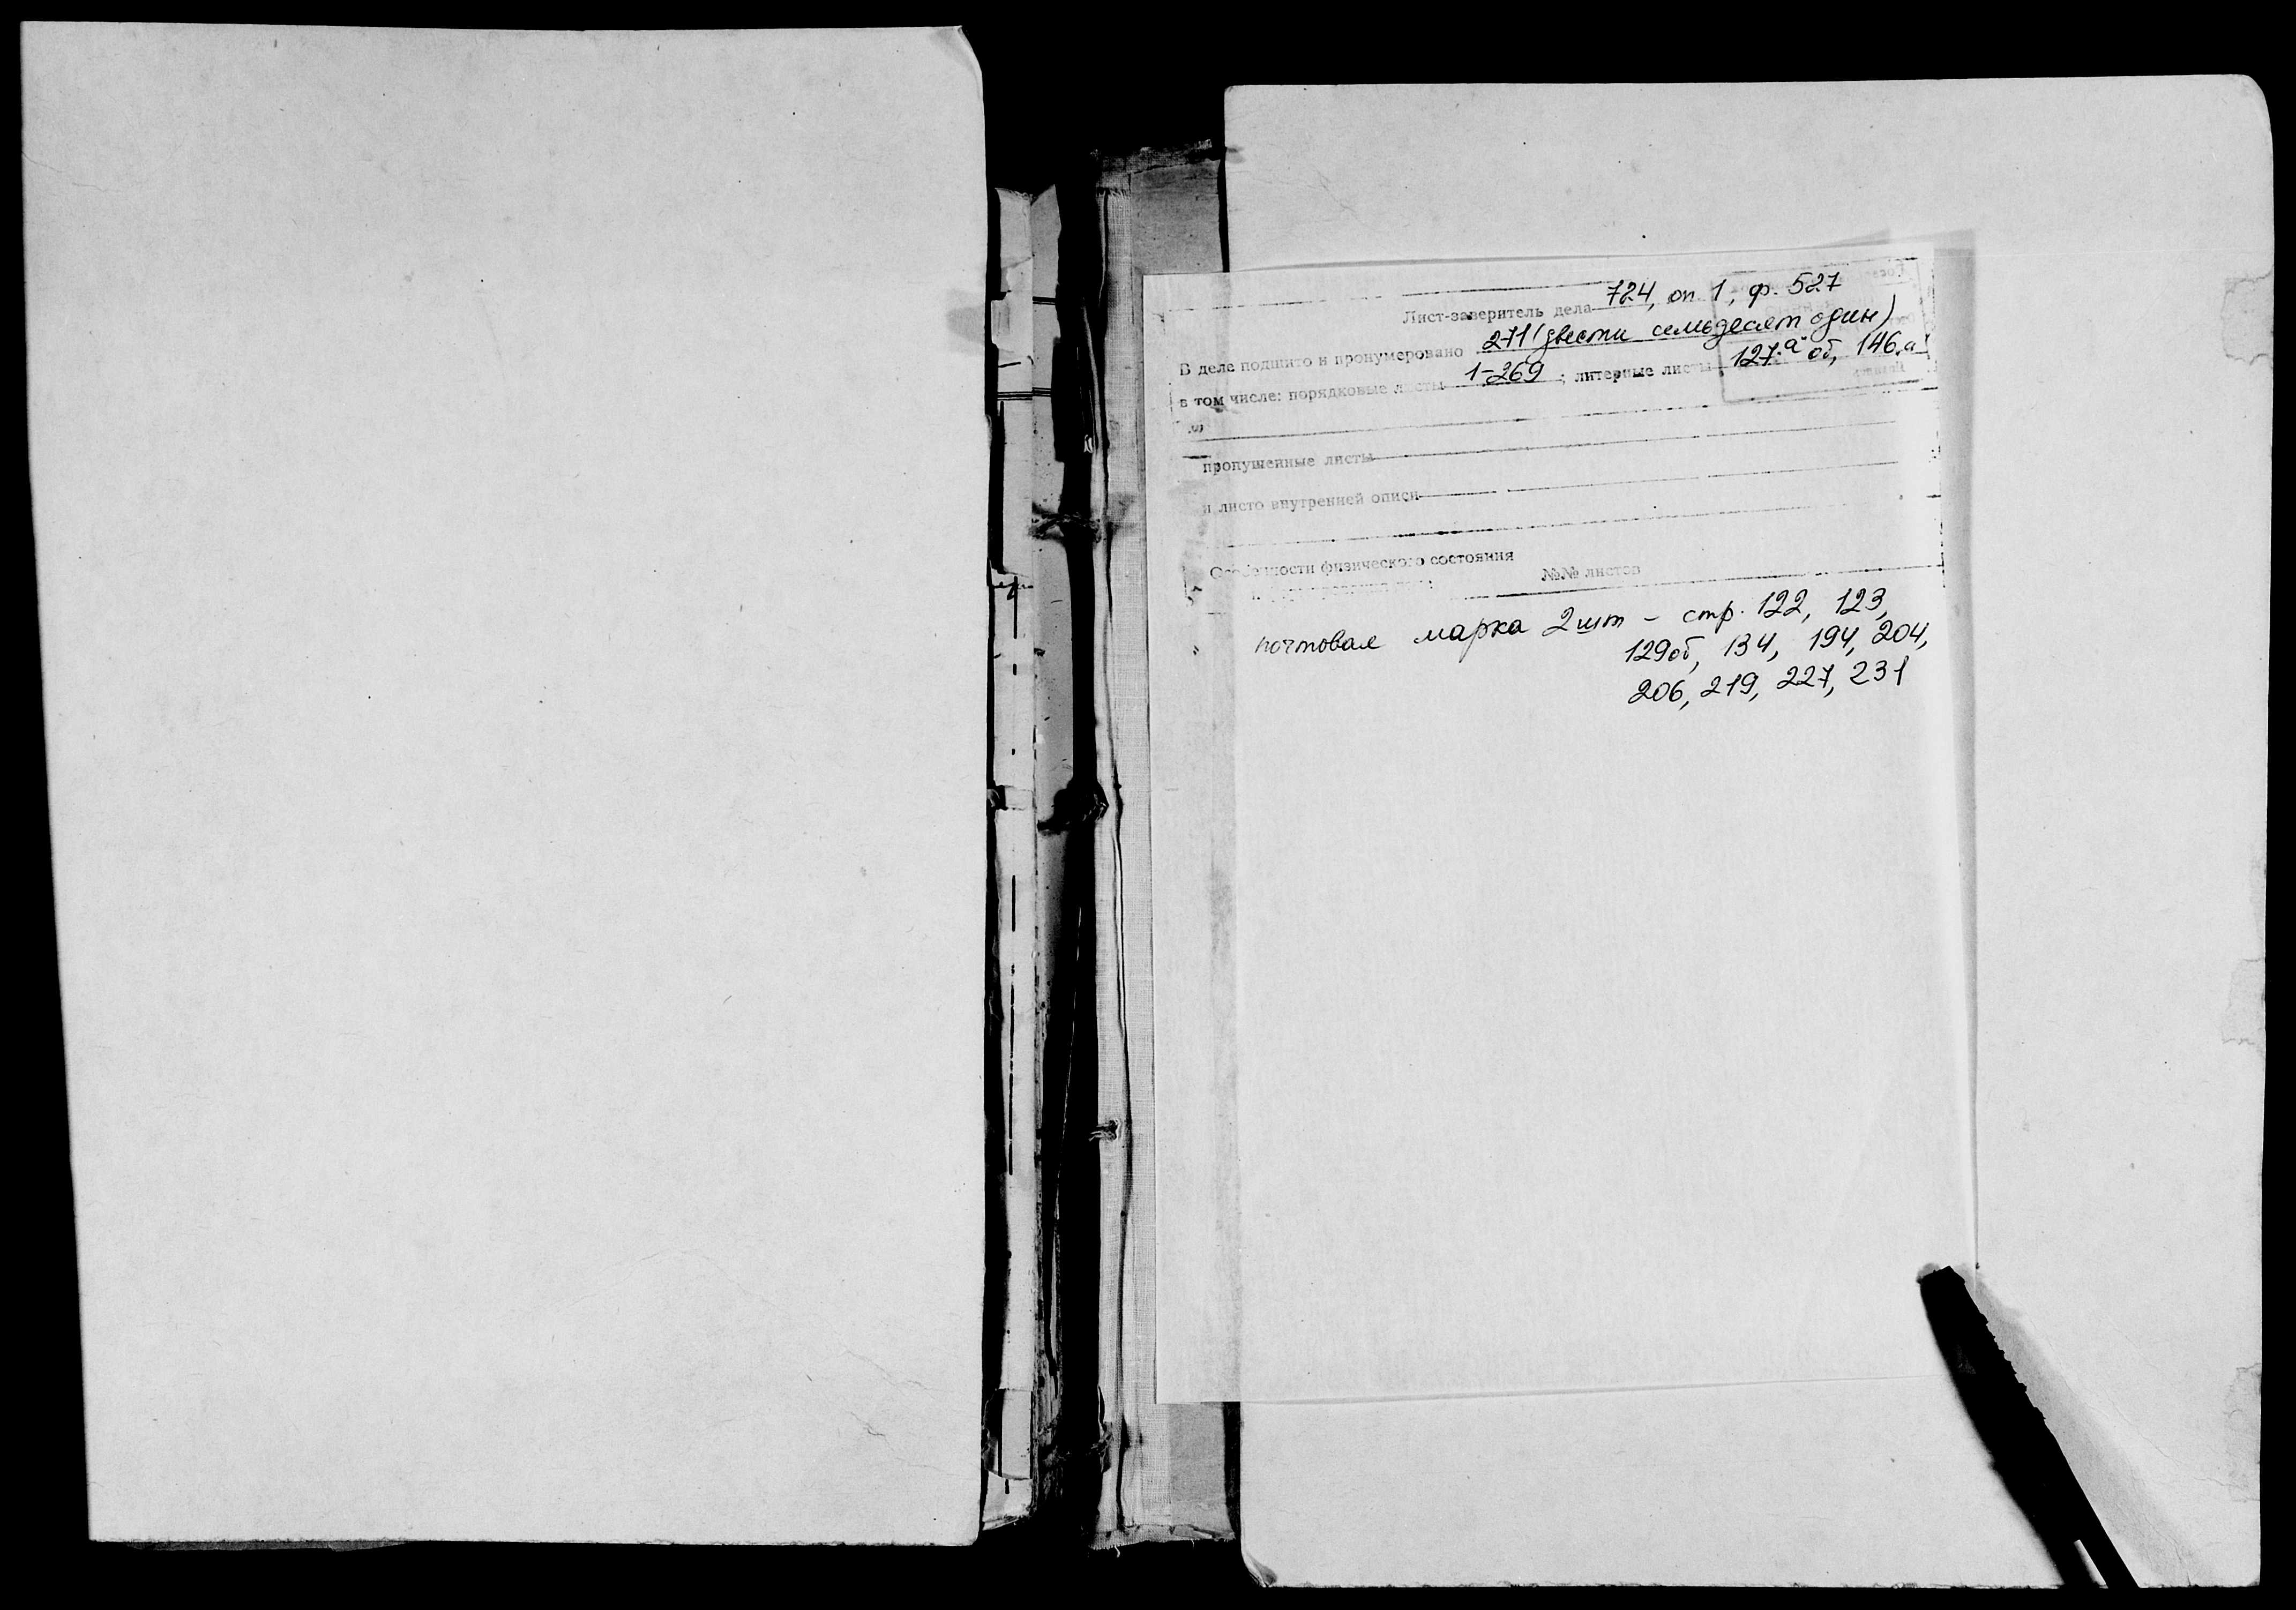 Лист-заверитель дела 724, оп 1, ф. 527
В деле подшито и пронумеровано 271 (двести семьдесят один)
в том числе: порядковые листы 1-269 ; литерные листы 127„а" об, 146„а"
пропущенные листы
и листо внутренней описи
Особенности физического состояния
№№ листов
почтовая марка 2 шт - стр. 122, 123,
129об, 134, 194, 204,
206, 219, 227, 231